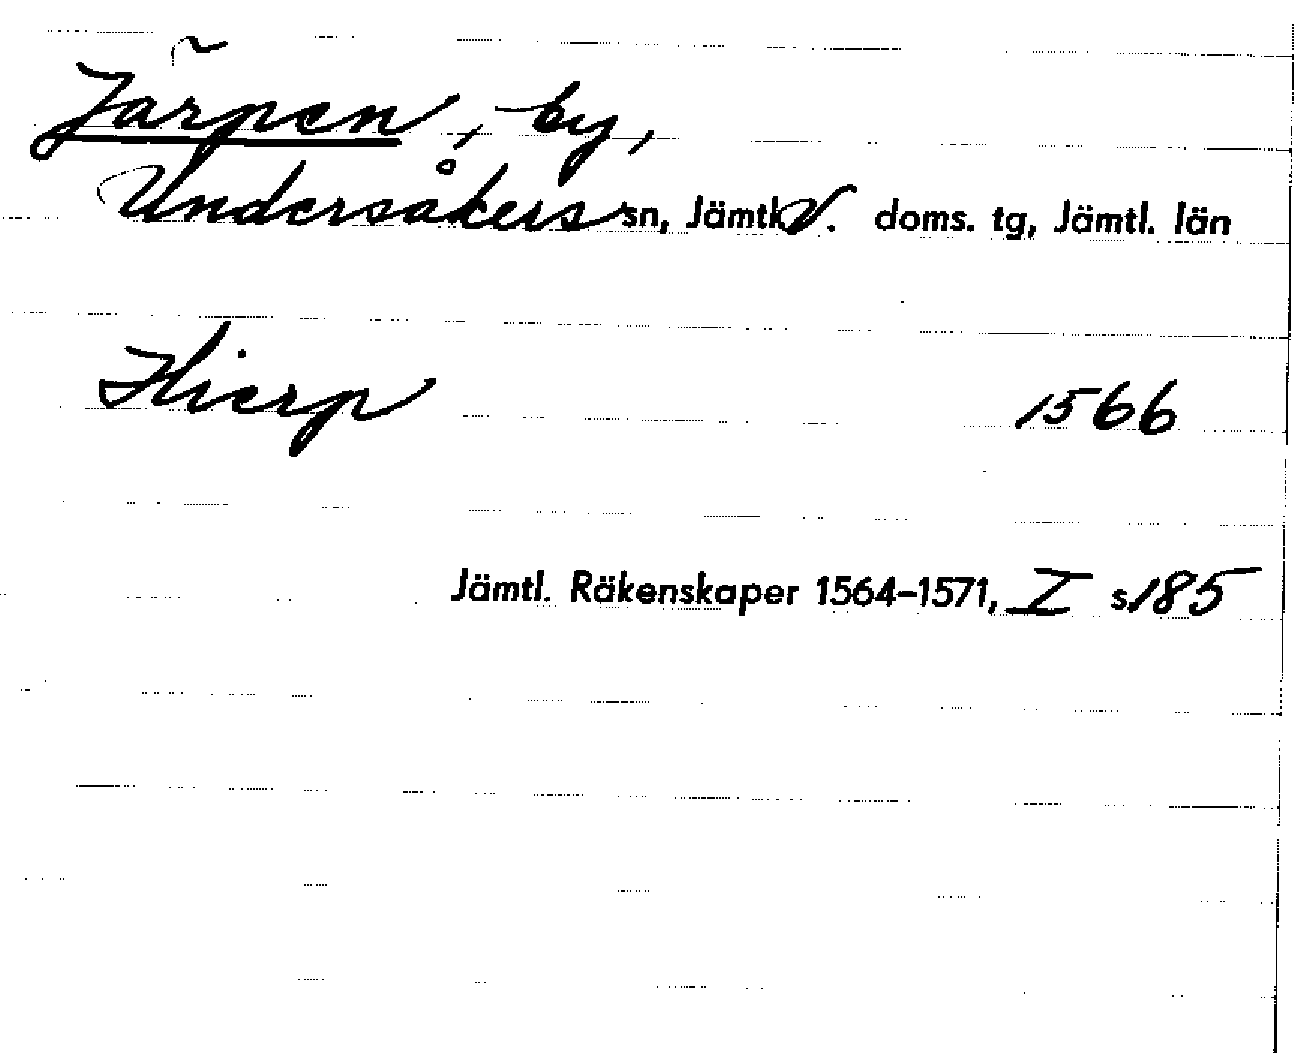 Järpen, by,
Undersåkers sn, Jämtl. V. doms. tg, Jämtl. län
Hierp 1566
Jämtl. Räkenskaper 1564–1571, I s. 185